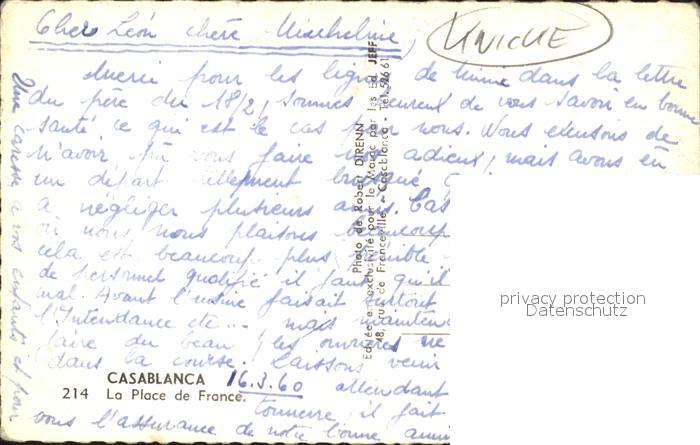 Cher Léon chère Mischeline,
UNIQUE
Merci pour les lignes de Mimie dans la lettre
du père du 18/2, sommes heureux de vous savoir en bonne
santé ce qui est le cas pour nous. Nous excusons de
n'avoir pu vous faire nos adieux, mais avons eu
un départ tellement brusqué
à négliger plusieurs amis. Cas
où nous nous plaisons beaucoup
cela est beaucoup plus
de personnel qualifié il faut qu'il
mal. Avant l'usine faisait surtout
l'Intendance etc... mais mainten
faire du beau, les ouvrières ne
dans la course. Laissons venir
attendant
tonnerre il fait
vous l'assurance de notre bonne amit
Une caresse à vos enfants et pour
Photo de Robert DIRENN
Editée en exclusivité pour le Maroc par les Ed. JEFF
48, rue de Franceville - Casablanca - Tél. 526 61
CASABLANCA 16.3.60
214 La Place de France.
privacy protection
Datenschutz